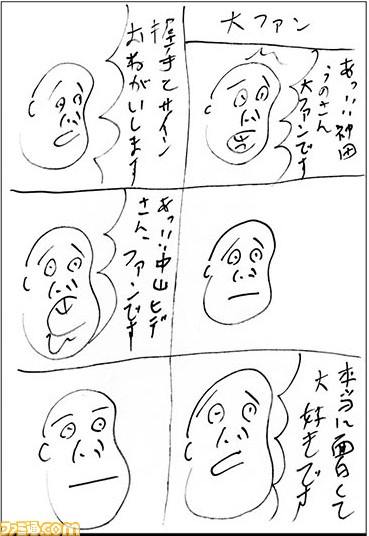 大ファン
あっ!!神田
うのさん
大ファンです
握手てサイン
おねがいします
あっ!!中山ヒデ
さん、
ファンです
本当に面白くて
大好きです
ファミ通.com